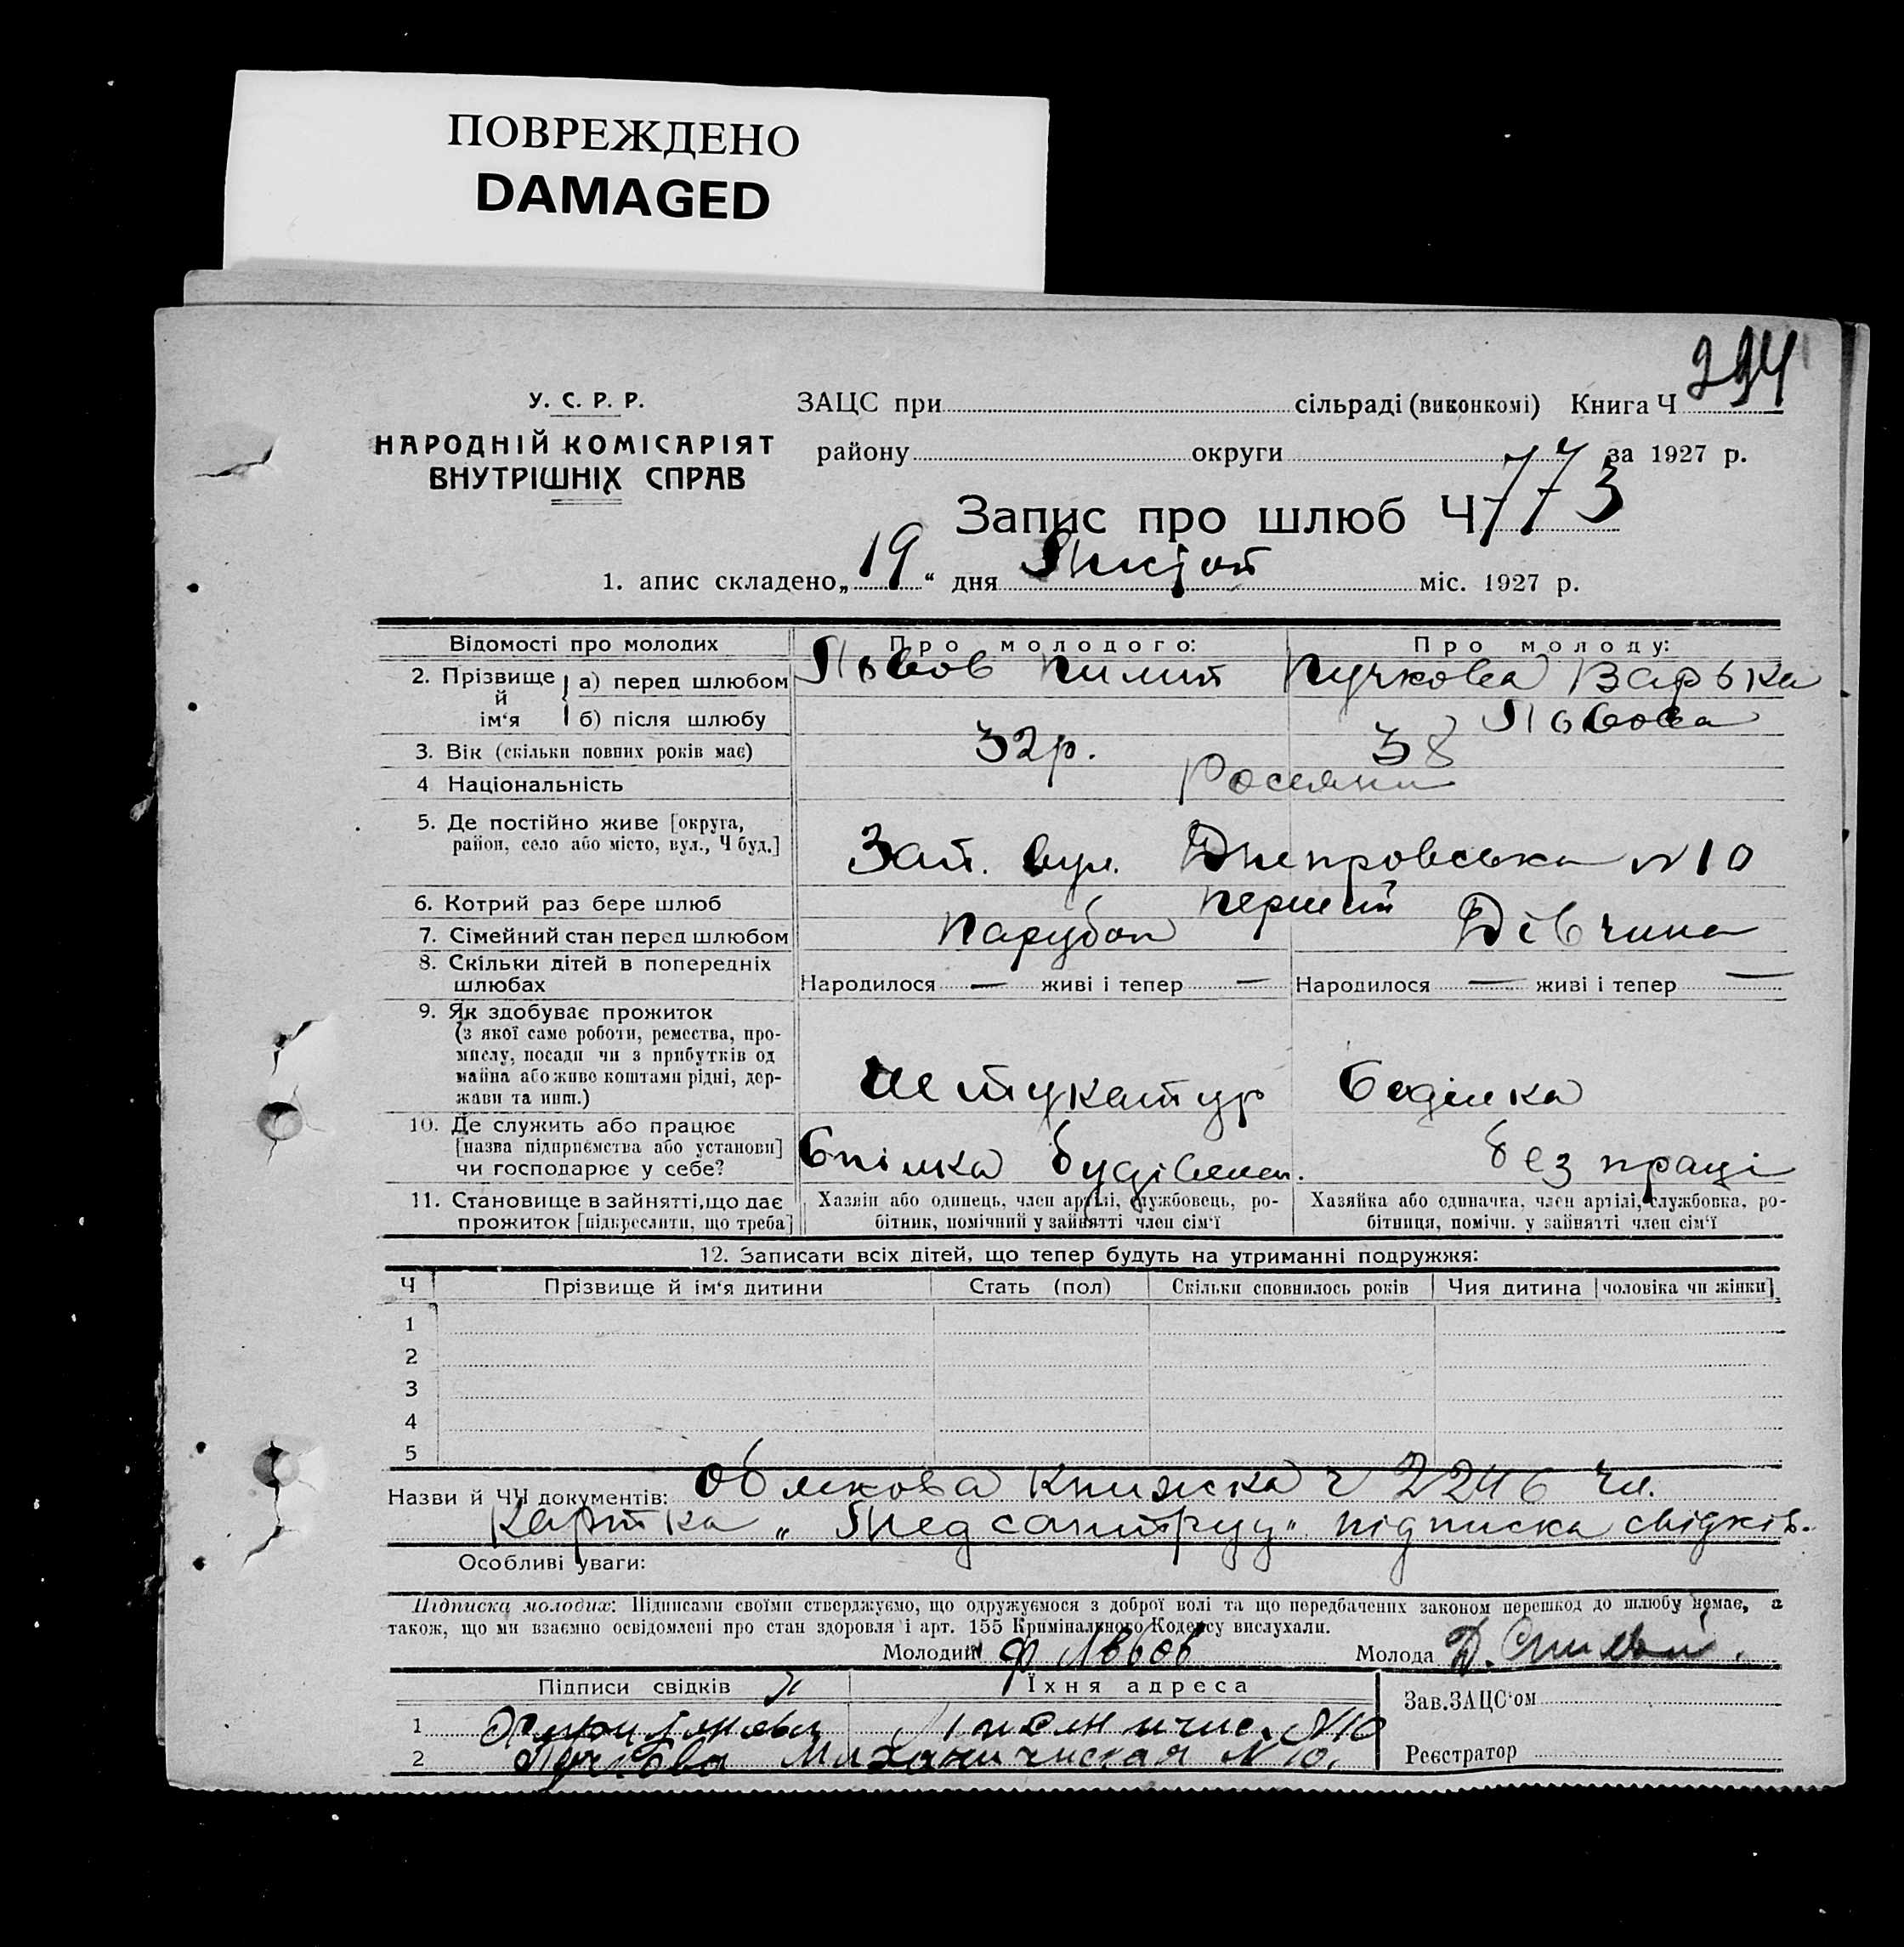 ПОВРЕЖДЕНО
DAMAGED
294
У. С. Р. Р.
НАРОДНІЙ КОМІСАРІЯТ
ВНУТРІШНІХ СПРАВ
ЗАЦС при сільраді (виконкомі) Книга Ч
району округи за 1927 р.
Запис про шлюб Ч 773
1. апис складено „19“ дня міс. 1927 р.
Відомості про молодих Про молодого: Про молоду:
2. Прізвище й ім'я а) перед шлюбом Львов Пилип Пучкова Варька
б) після шлюбу Львова
3. Вік (скільки повних років має) 32р. 38
4 Національність Росияни
5. Де постійно живе [округа,
район, село або місто, вул., Ч буд.] Зап. вул. Днепровська №10
6. Котрий раз бере шлюб перший
7. Сімейний стан перед шлюбом Парубок Дівчина
8. Скільки дітей в попередніх
шлюбах Народилося — живі і тепер — Народилося — живі і тепер —
9. Як здобуває прожиток
(з якої саме роботи, ремества, про-
мислу, посади чи з прибутків од
майна або живе коштами рідні, дер-
жави та инш.) Штукатур Сиділка
10. Де служить або працює
[назва підприємства або установи]
чи господарює у себе? Спілка будівельн. без праці
11. Становище в зайнятті, що дає
прожиток [підкреслити, що треба]
Хазяїн або одинець, член артілі, службовець, ро-
бітник, помічний у зайнятті член сім'ї
Хазяйка або одиначка, член артілі, службовка, ро-
бітниця, помічн. у зайнятті член сім'ї
12. Записати всіх дітей, що тепер будуть на утриманні подружжя:
Ч Прізвище й ім'я дитини Стать (пол) Скільки сповнилось років Чия дитина [чоловіка чи жінки]
1
2
3
4
5
Назви й ЧЧ документів: Облікова книжка ч 2246 чл.
картка „Медсантруд“ підписка свідків.
Особливі уваги:
Підписка молодих: Підписами своїми стверджуємо, що одружуємося з доброї волі та що передбачених законом перешкод до шлюбу немає, а
також, що ми взаємно освідомлені про стан здоровля і арт. 155 Кримінального Кодексу вислухали.
Молодий Ф Львов Молода
Підписи свідків Їхня адреса Зав.ЗАЦС'ом
1 №10
2 Пучкова Миханическая №10. Реєстратор